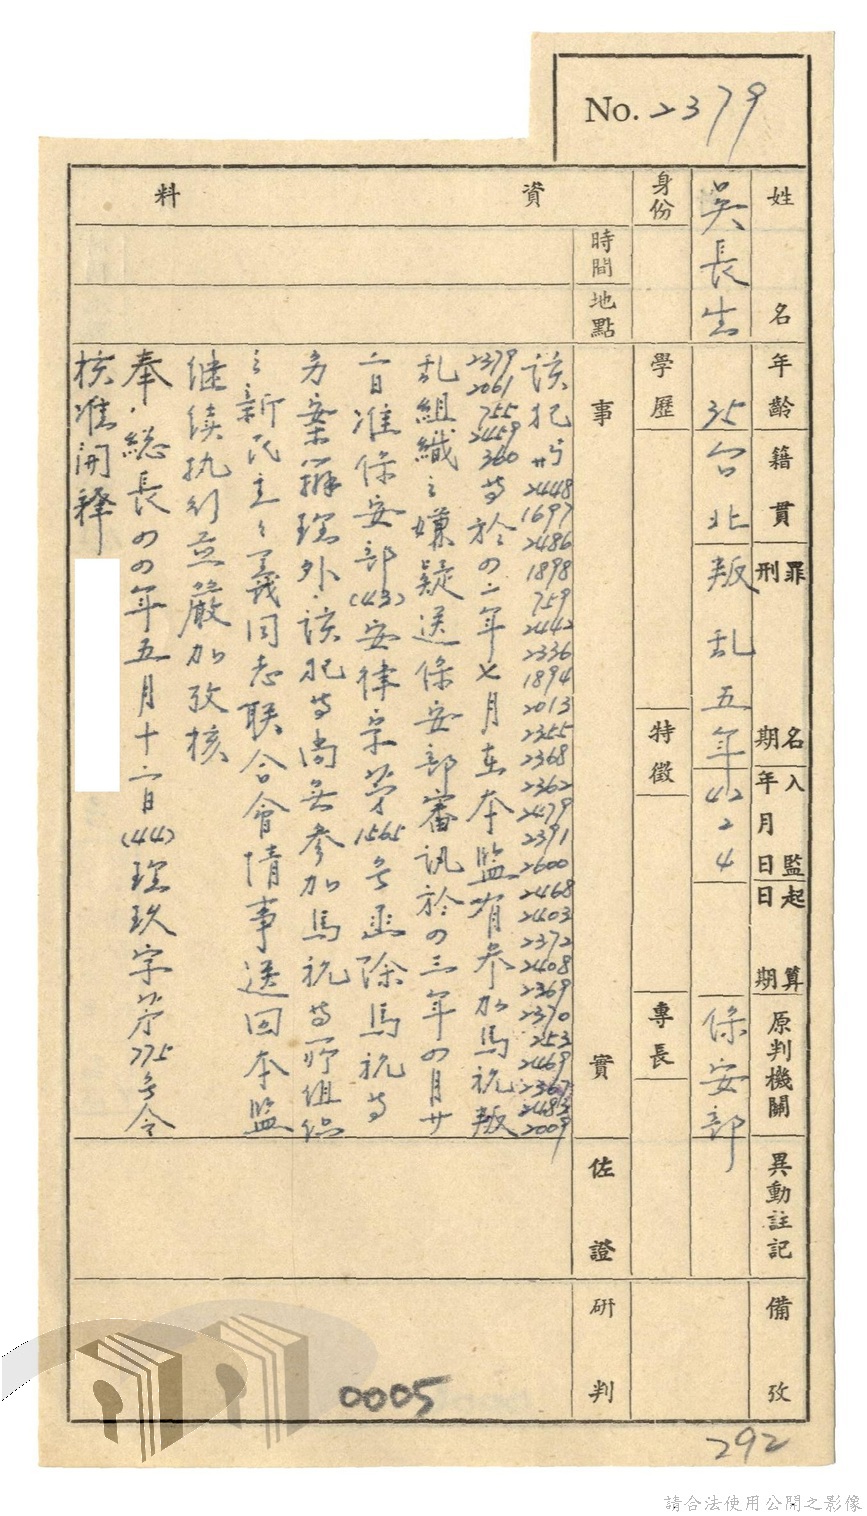 No. 2379
姓名 年齡 籍貫 罪名刑期 入監年月日 起算日期 原判機關 異動註記 備攷
吳長生 35 台北 叛乱五年 42 2 4 保安部
身份 學歷 特徵 專長
資料
時間 地點 事實 佐證 研判
該犯廿与 2448 1697 2486 1898 759 2442 2336 1894 2013 2355 2368 2362 2479 2391 2600 2468 2403 2372 2408 2369 2370 253 2469 2367 2483 2009
2379 2061 755 2459 360 等於四二年七月在本監有參加馬祝叛
乱組織之嫌疑送保安部審訊於四三年四月廿
二日准保安部(43)安律宗第1565号函除馬祝等
另案辦理外、該犯等尚無參加馬祝等所組织
之新民主主義同志联合會情事送回本監
继续执行並嚴加攷核
奉、總長四四年五月十二日(44)理玖字第775号令
核准開釋
0005
292
請合法使用公開之影像